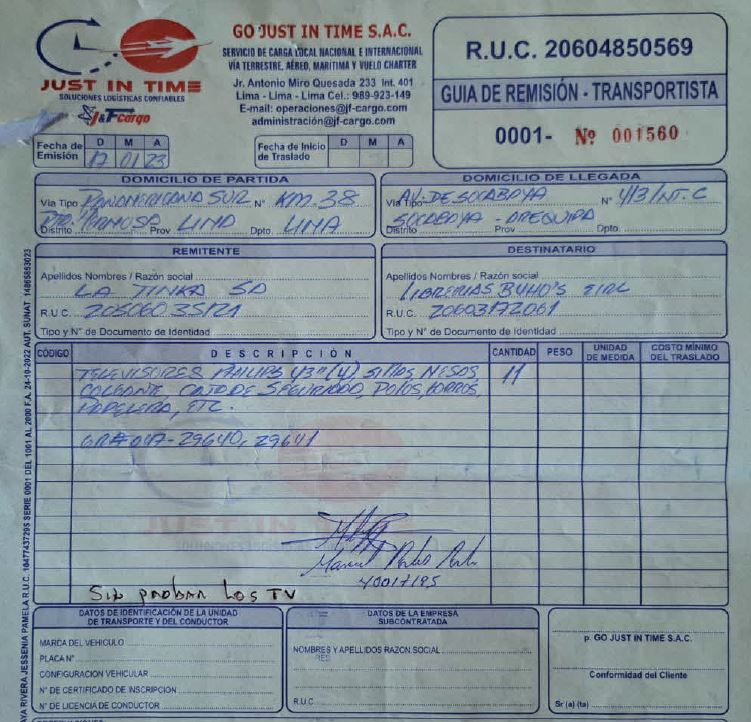 GO JUST IN TIME S.A.C.
SERVICIO DE CARGA LOCAL NACIONAL E INTERNACIONAL
VÍA TERRESTRE, AÉREO, MARÍTIMA Y VUELO CHARTER
Jr. Antonio Miro Quesada 233 Int. 401
Lima - Lima - Lima Cel.: 989-923-149
E-mail: operaciones@jf-cargo.com
administración@jf-cargo.com
JUST IN TIME
SOLUCIONES LOGÍSTICAS CONFIABLES
J&F cargo
R.U.C. 20604850569
GUIA DE REMISIÓN - TRANSPORTISTA
0001- Nº 001560
Fecha de Emisión D M A
17 01 23
Fecha de Inicio de Traslado D M A
DOMICILIO DE PARTIDA
Via Tipo PANAMERICANA SUR N° KM. 38
Distrito PTA. HERMOSA Prov LIMA Dpto. LIMA
DOMICILIO DE LLEGADA
Via Tipo AV. DE SOCABAYA N° 413 INT. C
SOCABAYA - AREQUIPA
Distrito Prov Dpto.
REMITENTE
Apellidos Nombres / Razón social
LA TINKA SA
R.U.C. 20506035121
Tipo y N° de Documento de Identidad
DESTINATARIO
Apellidos Nombres / Razón social
LIBRERIAS BUHO'S EIRL
R.U.C. 20603172061
Tipo y N° de Documento de Identidad
CÓDIGO DESCRIPCIÓN CANTIDAD PESO UNIDAD DE MEDIDA COSTO MÍNIMO DEL TRASLADO
TELEVISORES PHILIPS 43" (4), SILLAS, MESAS, 11
COLGANTE, CINTO DE SEGURIDAD, POLOS, GORROS,
PAPELERA, ETC.
GR# 047-29640, 29641
40017195
SIN PROBAR LOS TV
DATOS DE IDENTIFICACIÓN DE LA UNIDAD DE TRANSPORTE Y DEL CONDUCTOR
MARCA DEL VEHICULO
PLACA N°
CONFIGURACION VEHICULAR
N° DE CERTIFICADO DE INSCRIPCION
N° DE LICENCIA DE CONDUCTOR
DATOS DE LA EMPRESA SUBCONTRATADA
NOMBRES Y APELLIDOS RAZON SOCIAL
R.U.C
p. GO JUST IN TIME S.A.C.
Conformidad del Cliente
Sr (a) (ta)